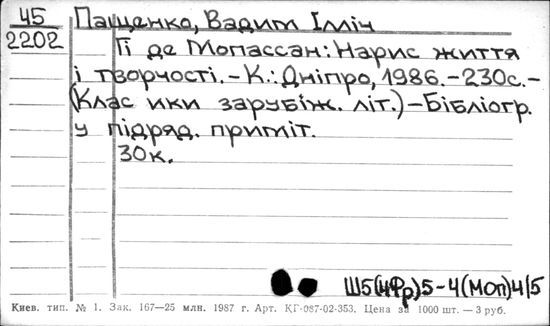 45 Пащенко, Вадим Ілліч
2202 Гі де Мопассан: Нарис життя
і творчості.-К.: Дніпро, 1986.-230с.-
(Клас ики зарубіж. літ.)-Бібліогр.
у підряд. приміт.
30к.
Ш5(4Фр)5-4(Моп)4/5
Киев. тип. № 1. Зак. 167—25 млн. 1987 г. Арт. КГ-087-02-353. Цена за 1000 шт. — 3 руб.